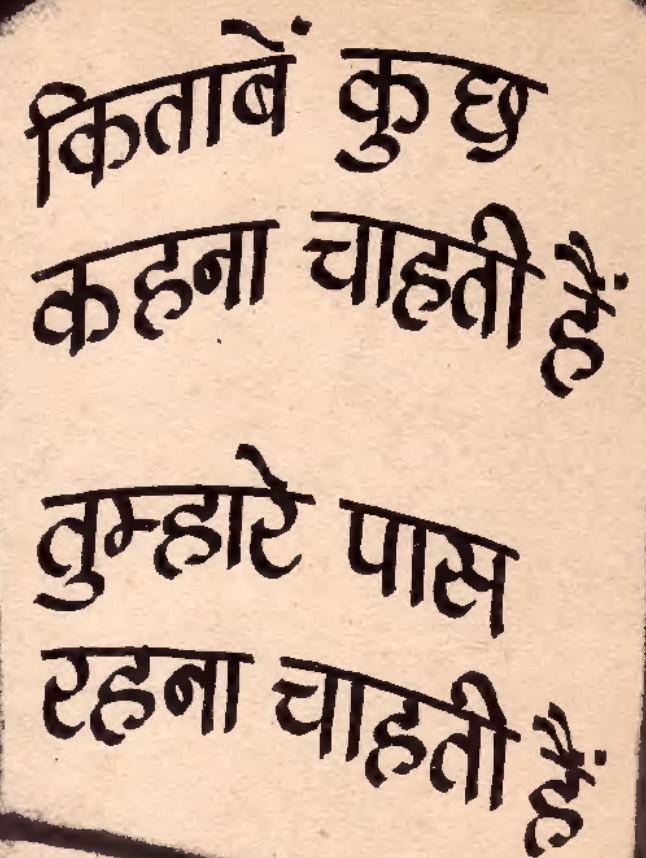 किताबें कुछ
कहना चाहती हैं
तुम्हारे पास
रहना चाहती हैं